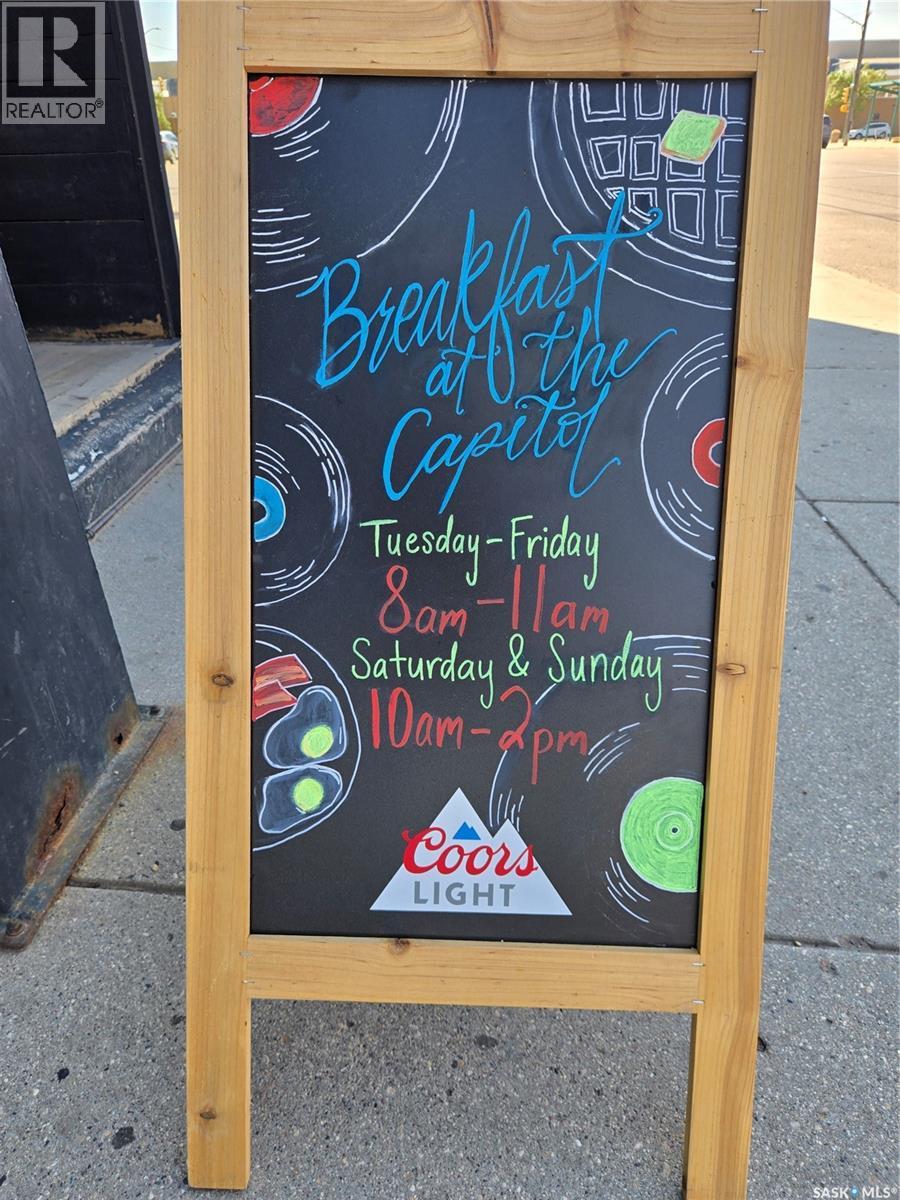 R
REALTOR®
Breakfast
at the
Capitol
Tuesday-Friday
8am-11am
Saturday & Sunday
10am-2pm
Coors
LIGHT
SASK MLS®